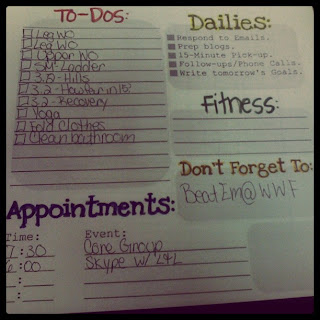 To-Dos:
Leg WO
Leg WO
Upper WO
Ladder
3.15-Hills
3.2-How far in 15?
3.2-Recovery
Yoga
Fold Clothes
Clean bathroom
Dailies:
Respond to Emails.
Prep blogs.
15-Minute Pick-up.
Follow-ups/Phone Calls.
Write tomorrow's Goals.
Fitness:
Don't Forget To:
Beat Em@WWF
Appointments:
Time: Event:
7:30 Core Group
6:00 Skype w/ L4L